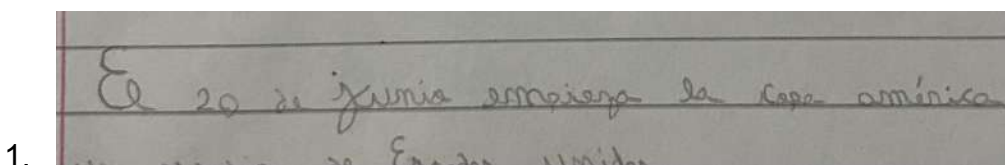 El 20 de junio empieza la copa américa
1. de unidos